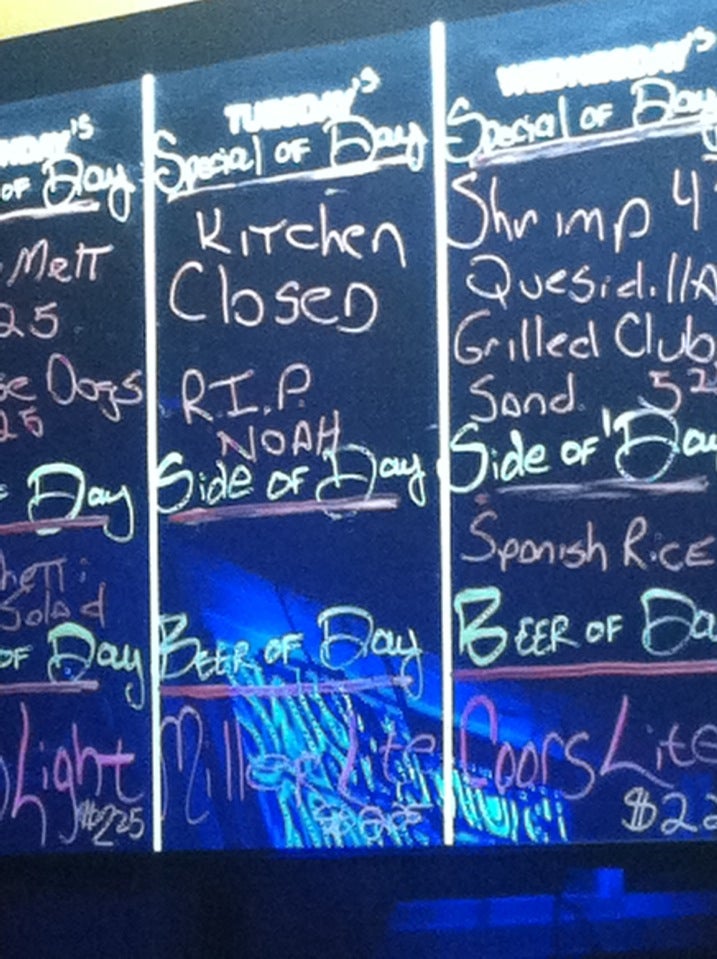 NDAY'S
OF Day
Melt
25
se Dogs
25
Day
hetti
Salad
OF Day
Light
$225
TUESDAY'S
Special OF Day
Kitchen
Closed
R.I.P.
NOAH
Side OF Day
BEER OF Day
Miller Lite
WEDNESDAY'S
Special OF Day
Shrimp 4
Quesidilla
Grilled Club
Sand. 52
Side OF Day
Spanish Rice
BEER OF Da
Coors Lite
$22